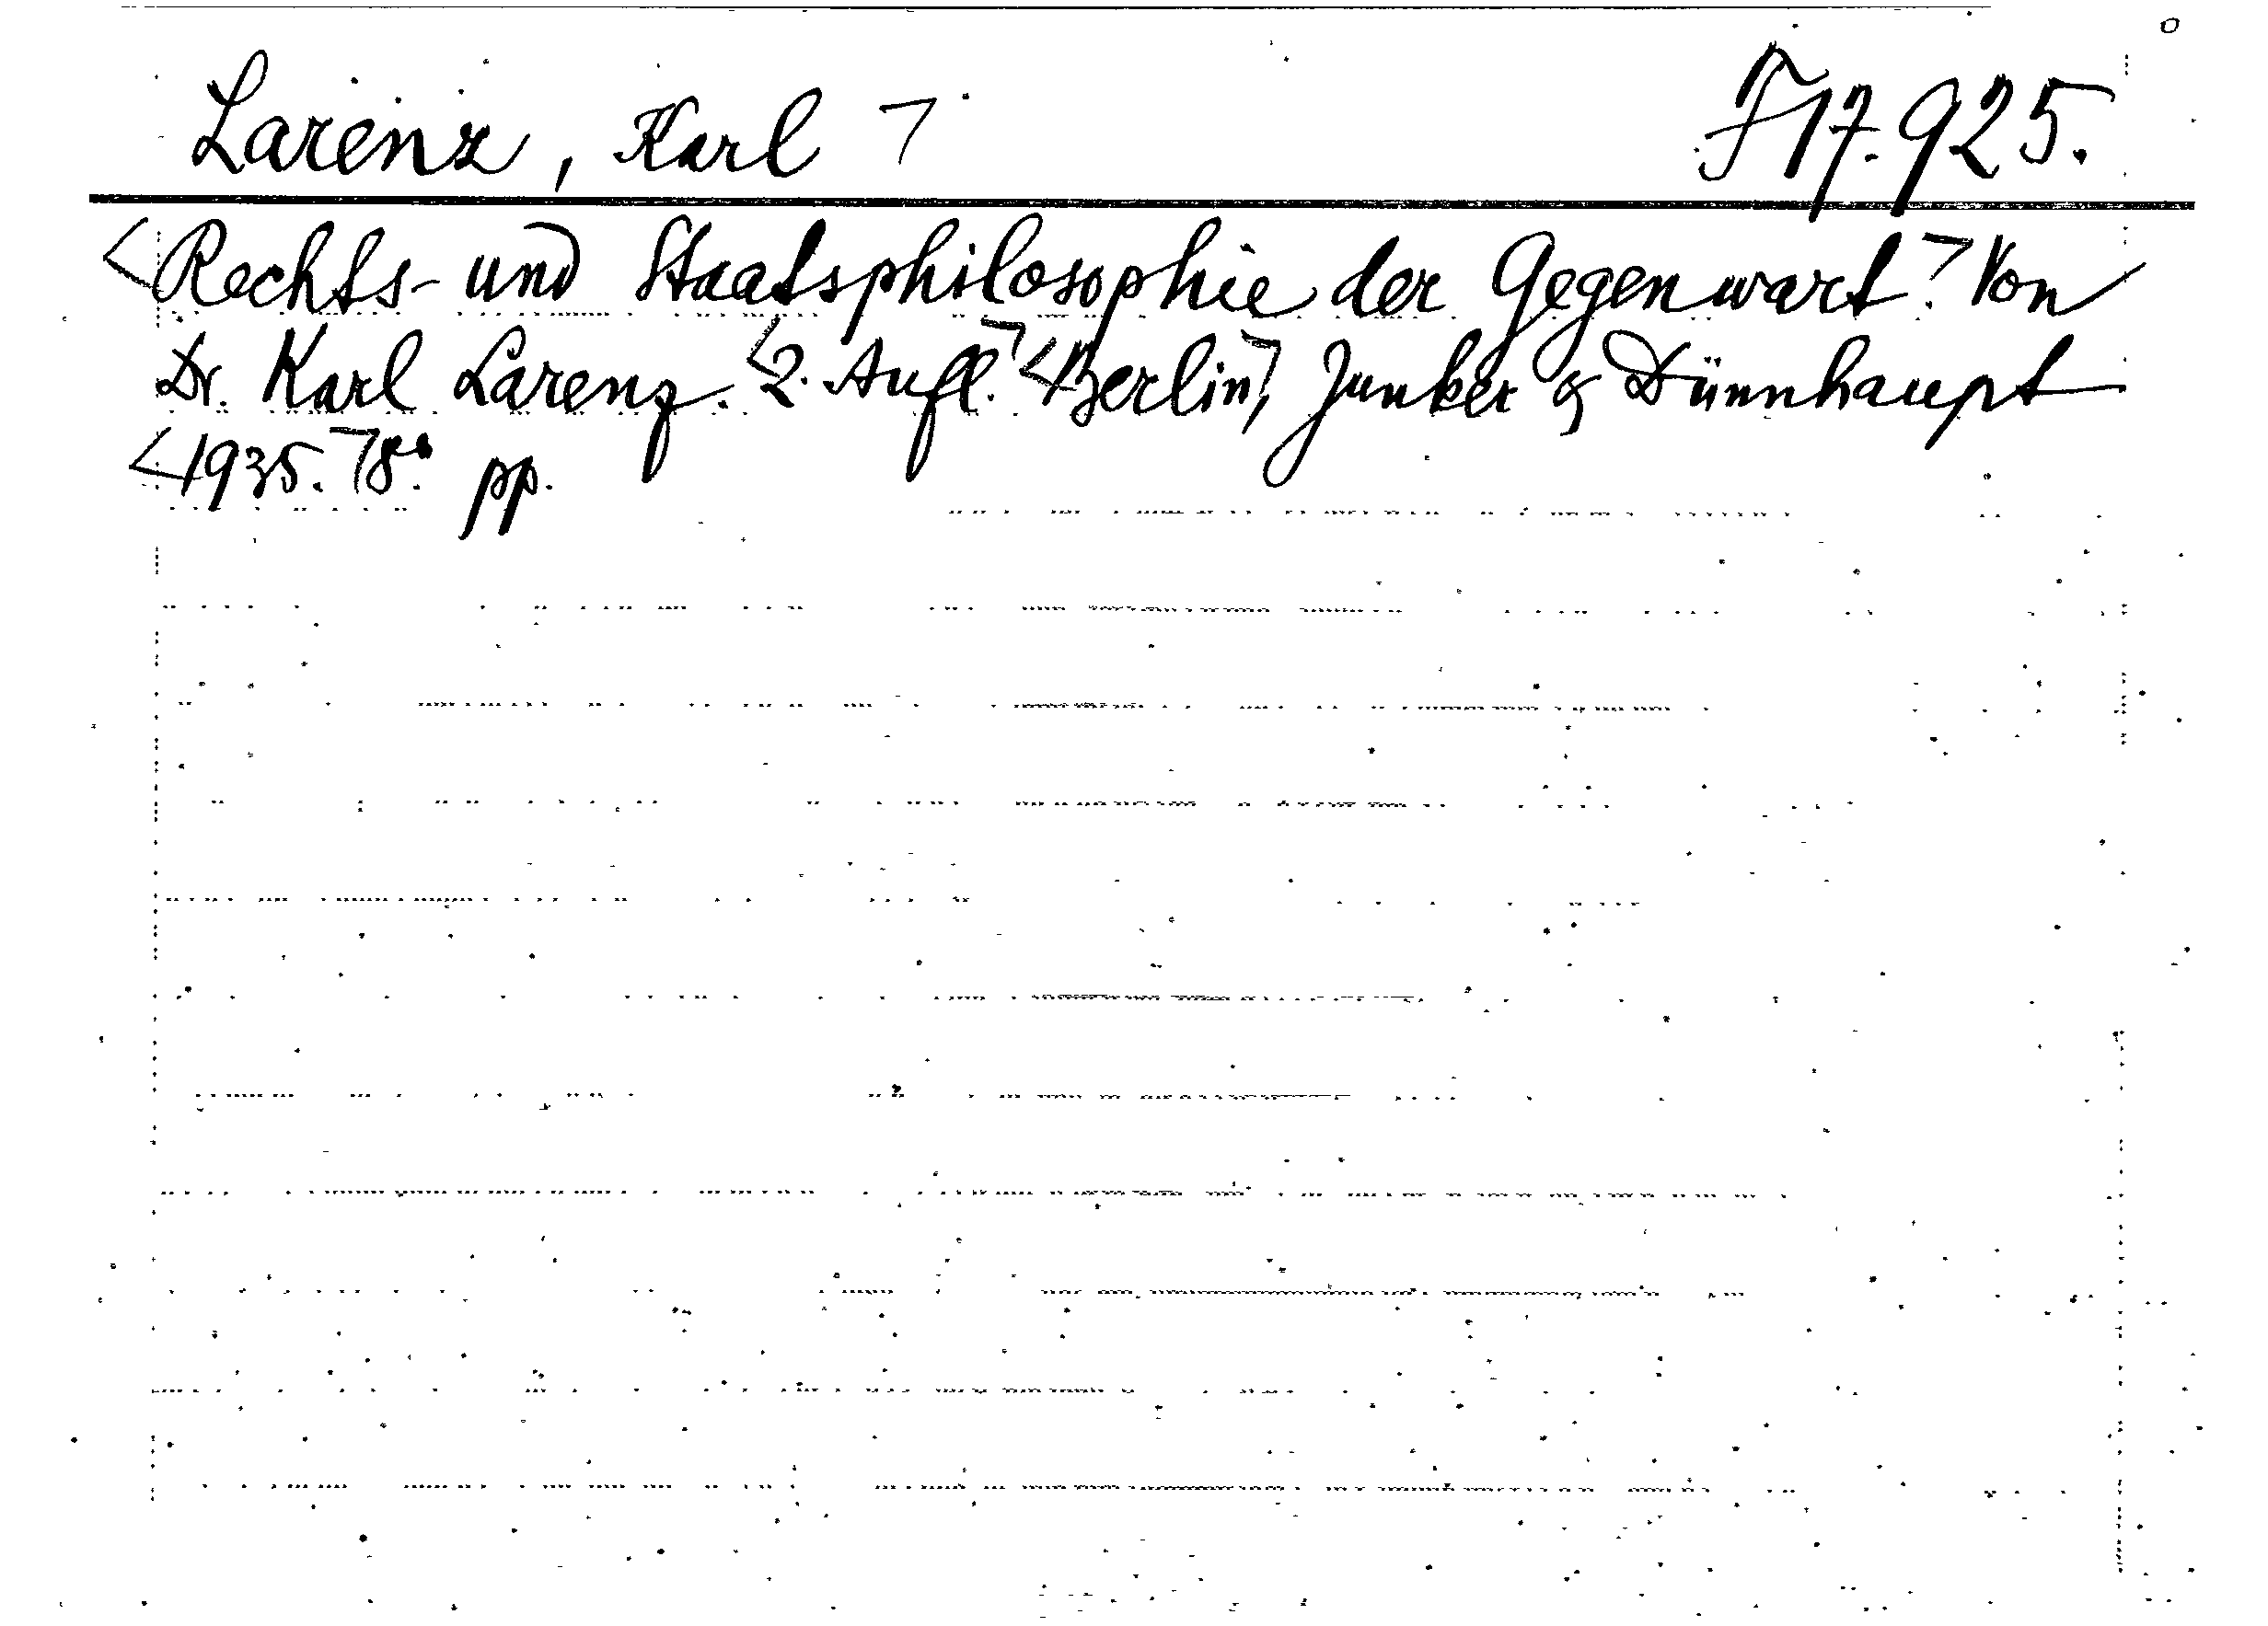 Larenz, Karl ┐ F 17.925.
<Rechts- und Staatsphilosophie der Gegenwart.┐ Von
Dr. Karl Larenz. <2. Aufl.┐ <Berlin┐, Junker & Dünnhaupt
<1935.┐ 8.° pp.